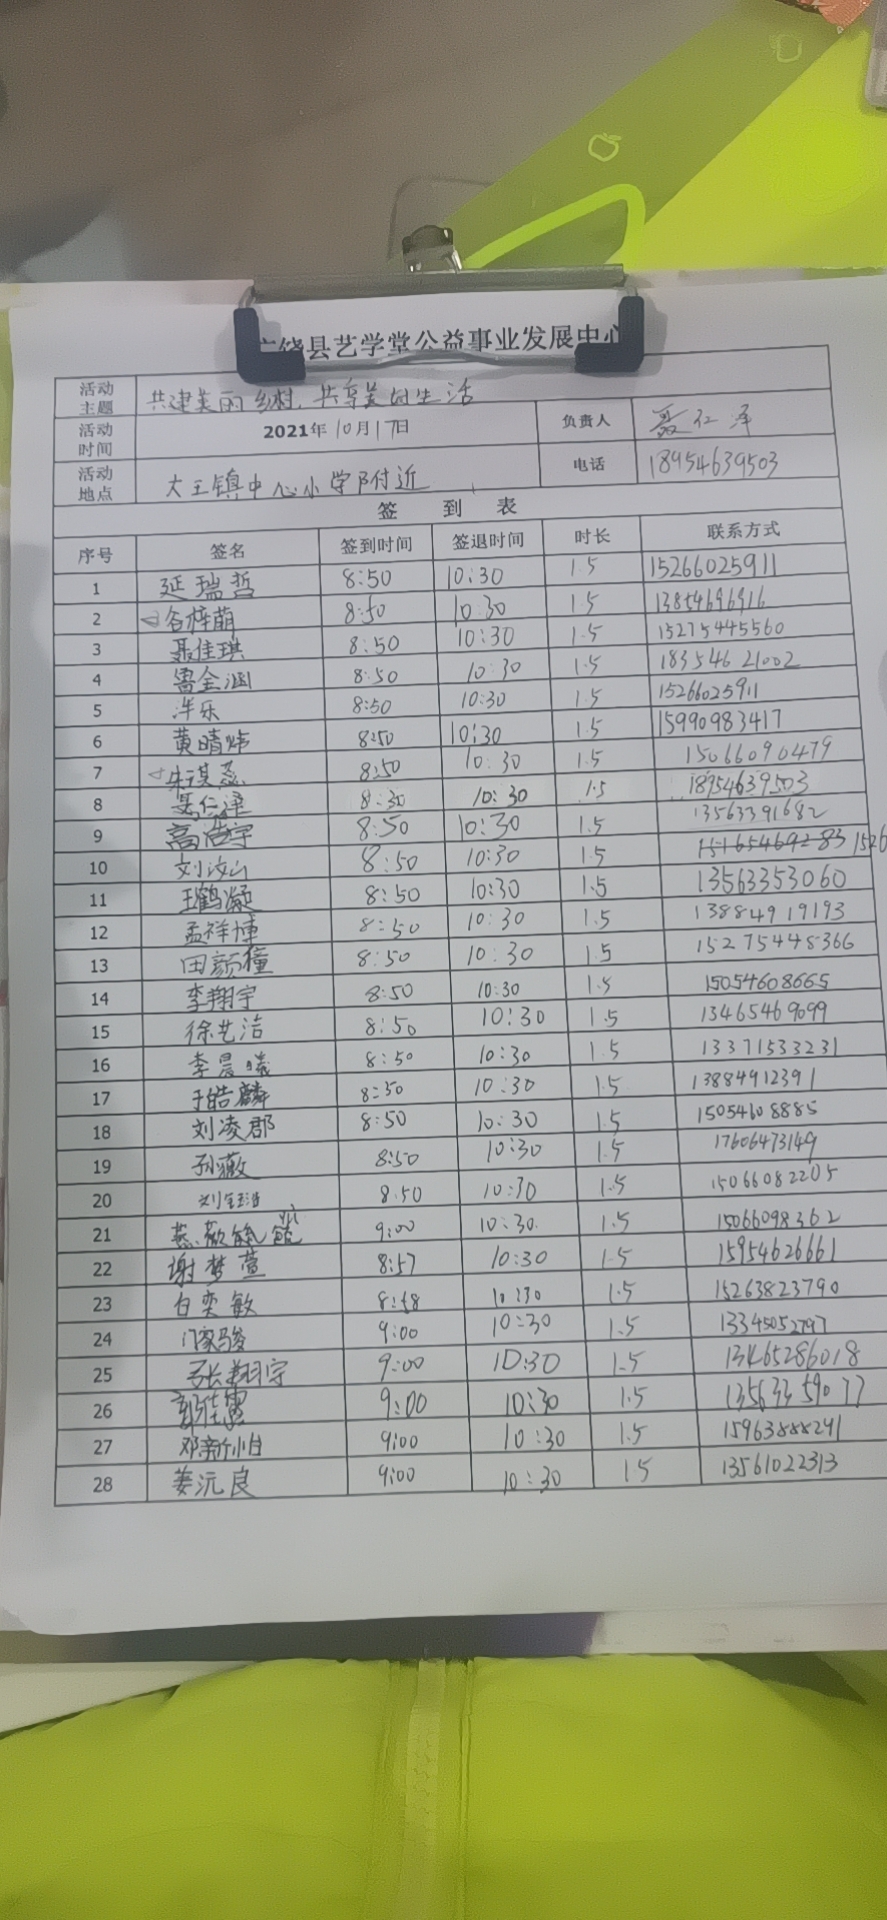 饶县艺学堂公益事业发展中心
活动主题 共建美丽乡村,共享美好生活
活动时间 2021年10月17日 负责人 聂仁泽
活动地点 大王镇中心小学附近 电话 18954639503
签 到 表
序号 签名 签到时间 签退时间 时长 联系方式
1 延瑞哲 8:50 10:30 1.5 15266025911
2 谷梓萌 8:50 10:30 1.5 13854696916
3 聂佳琪 8:50 10:30 1.5 15275445560
4 8:50 10:30 1.5 18354621002
5 8:50 10:30 1.5 15266025911
6 黄晴炜 8:50 10:30 1.5 15990983417
7 8:50 10:30 1.5 15066090479
8 聂仁泽 8:30 10:30 1.5 18954639503
9 高浩宇 8:50 10:30 1.5 13563391682
10 刘汝山 8:50 10:30 1.5 1526
11 王鹤凝 8:50 10:30 1.5 13563353060
12 孟祥博 8:50 10:30 1.5 13884919193
13 田颜橦 8:50 10:30 1.5 15275448366
14 李翔宇 8:50 10:30 1.5 15054608665
15 徐艺洁 8:50 10:30 1.5 13465469099
16 李晨曦 8:50 10:30 1.5 13371533231
17 于皓麟 8:50 10:30 1.5 13884912391
18 刘凌郡 8:50 10:30 1.5 15054608885
19 孙薇 8:50 10:30 1.5 17606473149
20 8:50 10:30 1.5 15066082205
21 9:00 10:30 1.5 15066098362
22 谢梦萱 8:57 10:30 1.5 15954626661
23 白奕敏 8:58 10:30 1.5 15263823790
24 门家骏 9:00 10:30 1.5 13345052797
25 张翔宇 9:00 10:30 1.5 13465286018
26 9:00 10:30 1.5 13563359077
27 邓新怡 9:00 10:30 1.5 15963888291
28 姜沅良 9:00 10:30 1.5 13561022313